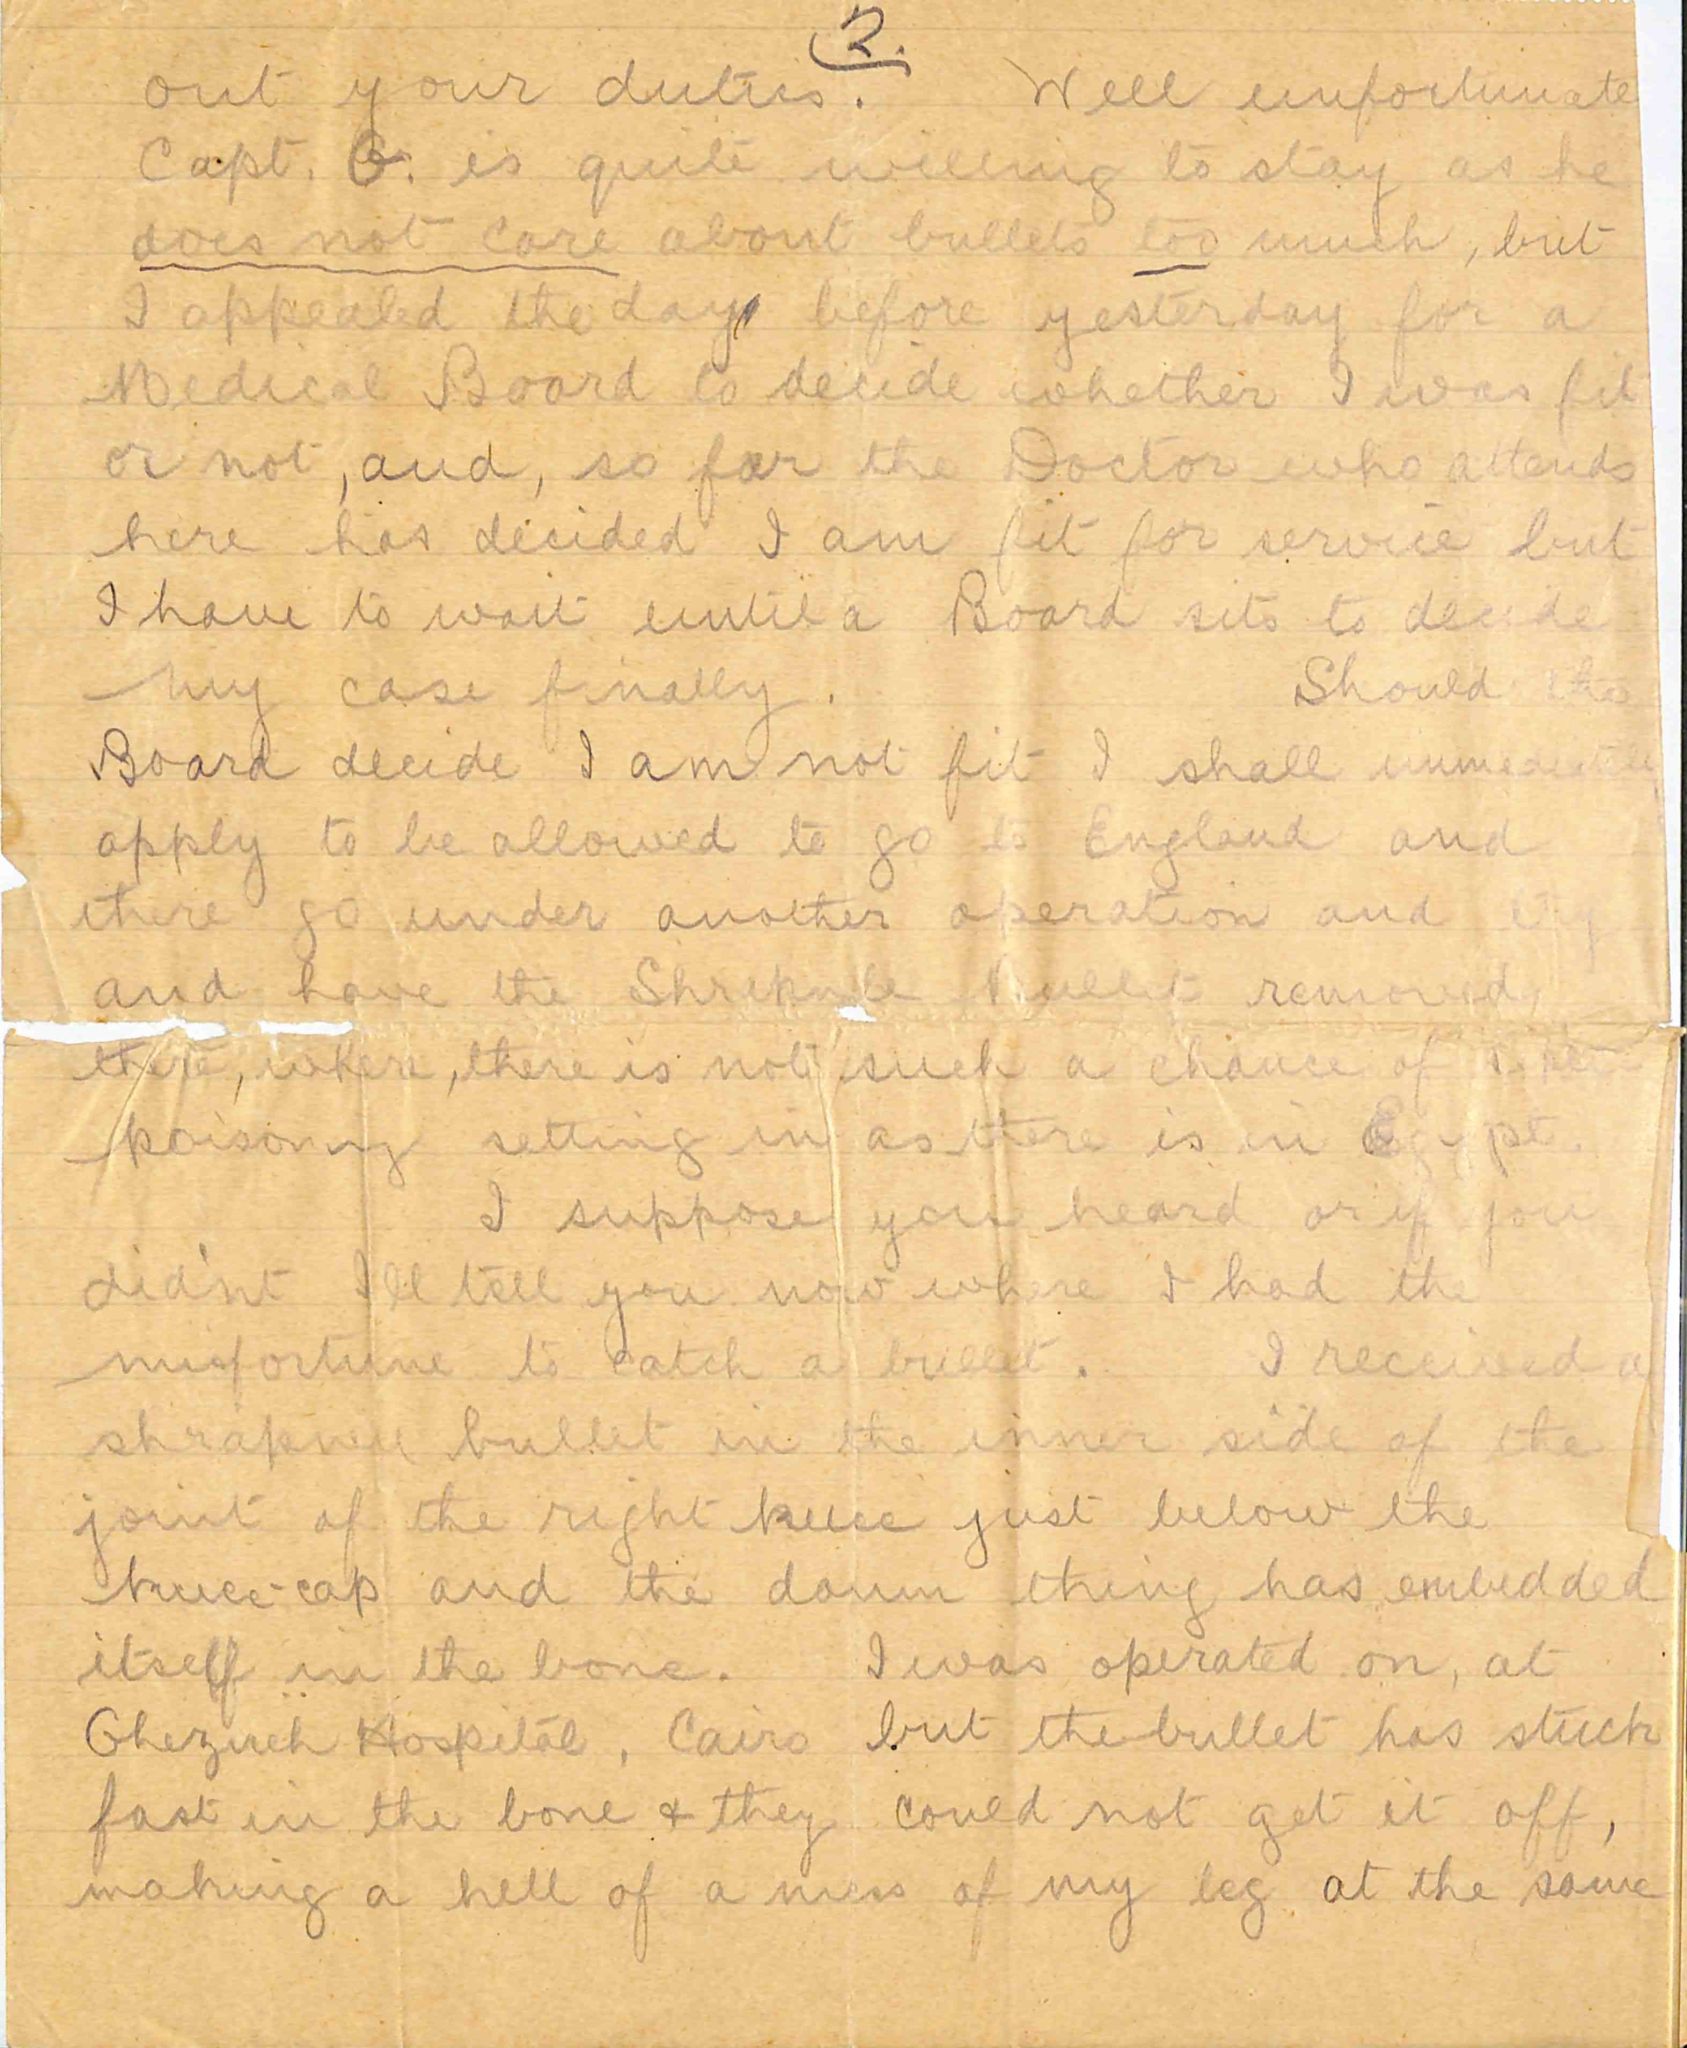 2.
out your duties. Well unfortunate
Capt. G. is quite willing to stay as he
does not care about bullets too much, but
I appealed the day before yesterday for a
Medical Board to decide whether I was fit
or not, and, so far the Doctor who attends
here has decided I am fit for service but
I have to wait until a Board sits to decide
my case finally. Should the
Board decide I am not fit I shall immediately
apply to be allowed to go to England and
there go under another operation and try
and have the bullet removed,
there, where, there is not such a chance of
poisoning setting in as there is in Egypt.
I suppose you heard or if you
did'nt I'll tell you now where I had the
misfortune to catch a bullet. I received a
shrapnell bullet in the inner side of the
joint of the right knee just below the
knee-cap and the damn thing has embedded
itself in the bone. I was operated on, at
Ghezireh Hospital, Cairo but the bullet has stuck
fast in the bone & they could not get it off,
making a hell of a mess of my leg at the same